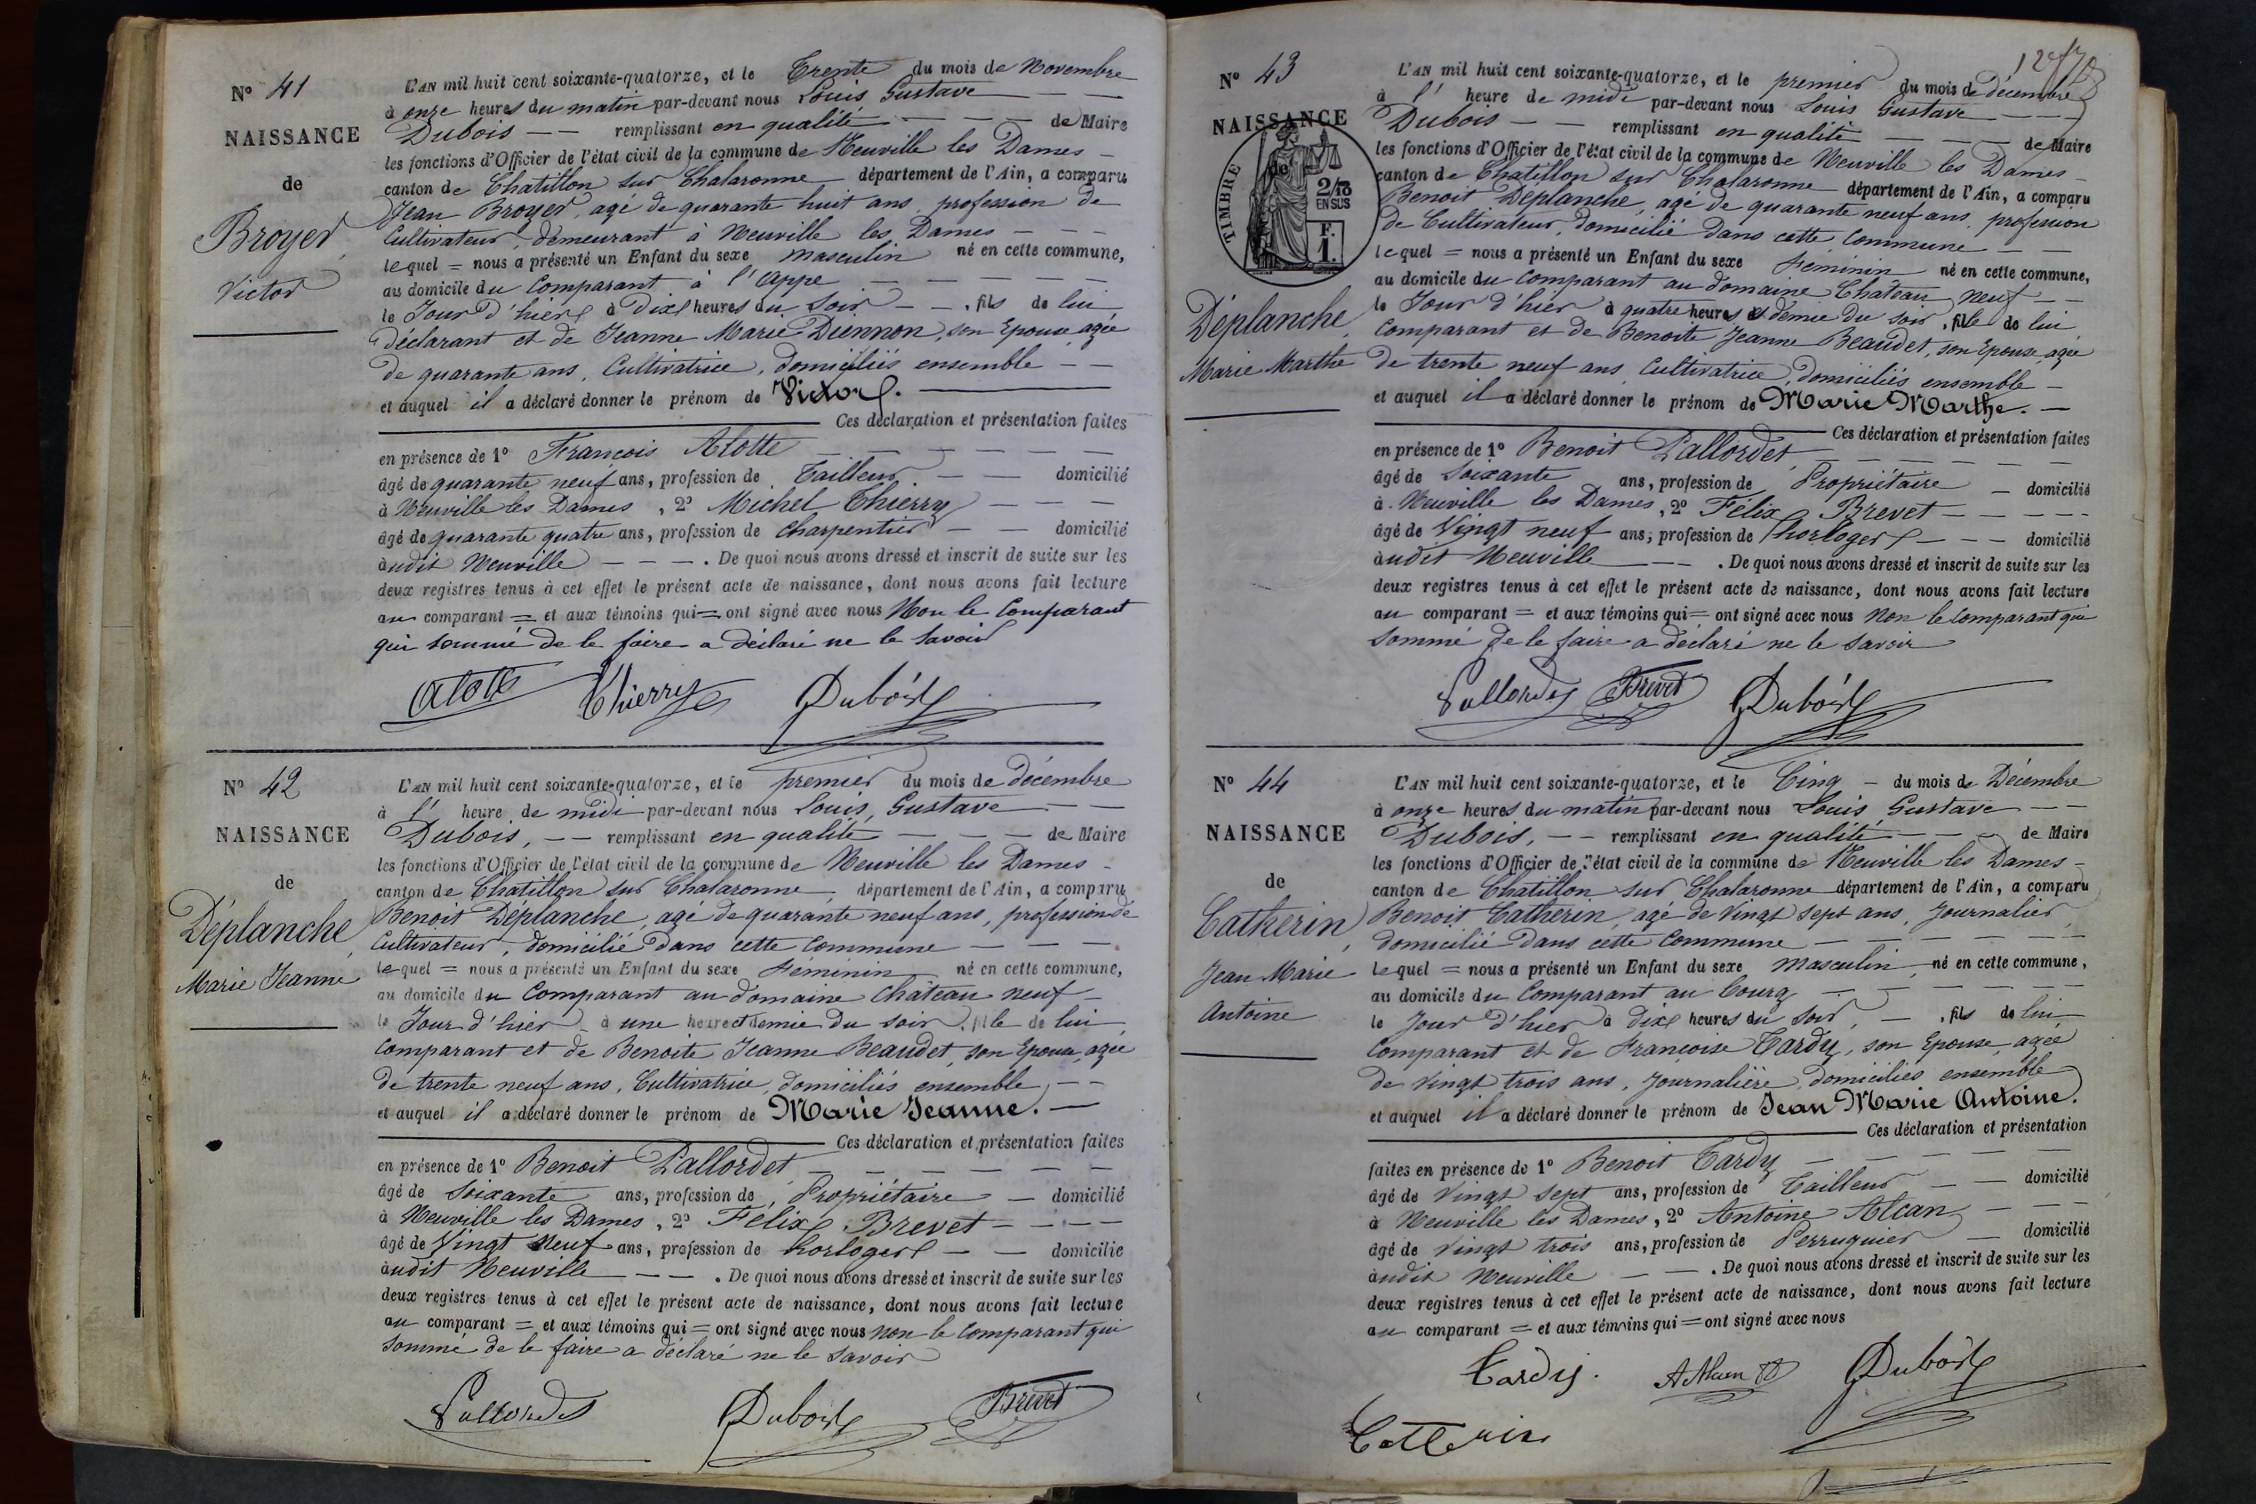 N° 41
NAISSANCE
de
Broyer,
Victor
L'AN mil huit cent soixante-quatorze, et le Trente du mois de Novembre
à onze heures du matin par-devant nous Louis, Gustave
Dubois — — remplissant en qualité — — — de Maire
les fonctions d'Officier de l'état civil de la commune de Neuville les Dames —
canton de Chatillon sur Chalaronne département de l'Ain, a comparu
Jean Broyer, agé de quarante huit ans, profession de
Cultivateur, demeurant à Neuville les Dames — — —
lequel = nous a présenté un Enfant du sexe masculin né en cette commune,
au domicile du Comparant à l'Appe — — — —
le Jour d'hier à Dix heures du Soir — —, fils de lui
déclarant et de Jeanne Marie Diennon, son Epouse, agée
de quarante ans, Cultivatrice, domiciliés ensemble — —
et auquel il a déclaré donner le prénom de Victor. —
Ces déclaration et présentation faites
en présence de 1° François Alotte — — — — —
âgé de quarante neuf ans, profession de Tailleur — — domicilié
à Neuville les Dames, 2° Michel Thierry — — —
âgé de quarante quatre ans, profession de Charpentier — — domicilié
audit Neuville — — — . De quoi nous avons dressé et inscrit de suite sur les
deux registres tenus à cet effet le présent acte de naissance, dont nous avons fait lecture
au comparant = et aux témoins qui = ont signé avec nous Non le Comparant
qui sommé de le faire a déclaré ne le Savoir
Alotte Thierry Dubois
N° 42
NAISSANCE
de
Déplanche,
Marie Jeanne
L'AN mil huit cent soixante-quatorze, et le premier du mois de décembre
à l' heure de midi par-devant nous Louis, Gustave — —
Dubois, — — remplissant en qualité — — — de Maire
les fonctions d'Officier de l'état civil de la commune de Neuville les Dames —
canton de Chatillon sur Chalaronne, département de l'Ain, a comparu
Benoit Déplanche, agé de quarante neuf ans, profession de
Cultivateur, domicilié dans cette Commune — — —
lequel = nous a présenté un Enfant du sexe Féminin né en cette commune,
au domicile du Comparant au domaine Château neuf —
le Jour d'hier à une heure et demie du soir, fille de lui
Comparant et de Benoite Jeanne Beaudet, son Epouse, agée
de trente neuf ans, Cultivatrice, domiciliés ensemble, — —
et auquel il a déclaré donner le prénom de Marie Jeanne. —
Ces déclaration et présentation faites
en présence de 1° Benoit Pallordet — — — — —
âgé de Soixante ans, profession de Propriétaire — domicilié
à Neuville les Dames, 2° Félix Brevet — — — —
âgé de Vingt Neuf ans, profession de horloger — — domicilié
audit Neuville — — — . De quoi nous avons dressé et inscrit de suite sur les
deux registres tenus à cet effet le présent acte de naissance, dont nous avons fait lecture
au comparant = et aux témoins qui = ont signé avec nous non le Comparant qui
Sommé de le faire a déclaré ne le savoir
Pallordet Dubois Brevet
N° 43
NAISSANCE
de
TIMBRE
2/10
EN SUS
F.
1.
Déplanche,
Marie Marthe
L'AN mil huit cent soixante-quatorze, et le premier du mois de décembre
à l' heure de midi par-devant nous Louis Gustave — — —
Dubois — — remplissant en qualité — — — de Maire
les fonctions d'Officier de l'état civil de la commune de Neuville les Dames —
canton de Chatillon sur Chalaronne département de l'Ain, a comparu
Benoit Déplanche, agé de quarante neuf ans, profession
de Cultivateur, domicilié dans cette Commune — —
lequel = nous a présenté un Enfant du sexe Féminin né en cette commune,
au domicile du Comparant au domaine Château neuf — —
le Jour d'hier à quatre heures et demie du soir, fille de lui
Comparant et de Benoite Jeanne Beaudet, son Epouse, agée
de trente neuf ans, Cultivatrice, domiciliés ensemble —
et auquel il a déclaré donner le prénom de Marie Marthe. —
Ces déclaration et présentation faites
en présence de 1° Benoit Pallordet — — — — —
âgé de Soixante ans, profession de Propriétaire — domicilié
à Neuville les Dames, 2° Félix Brevet — — — —
âgé de Vingt neuf ans, profession de horloger — — — domicilié
audit Neuville — — — . De quoi nous avons dressé et inscrit de suite sur les
deux registres tenus à cet effet le présent acte de naissance, dont nous avons fait lecture
au comparant = et aux témoins qui = ont signé avec nous Non le Comparant qui
Sommé de le faire a déclaré ne le savoir
Pallordet Brevet Dubois
N° 44
NAISSANCE
de
Catherin,
Jean Marie
Antoine
L'AN mil huit cent soixante-quatorze, et le Cinq — du mois de Décembre
à onze heures du matin par-devant nous Louis, Gustave — —
Dubois, — — remplissant en qualité — — — de Maire
les fonctions d'Officier de l'état civil de la commune de Neuville les Dames —
canton de Chatillon sur Chalaronne département de l'Ain, a comparu
Benoit Catherin, agé de Vingt sept ans, Journalier,
domicilié dans cette Commune — — — — — —
lequel = nous a présenté un Enfant du sexe masculin, né en cette commune,
au domicile du Comparant au bourg — — — — —
le Jour d'hier à dix heures du Soir, —, fils de lui
Comparant et de Françoise Tardy, son Epouse, agée
de Vingt trois ans, Journalière, domiciliés ensemble
et auquel il a déclaré donner le prénom de Jean Marie Antoine.
Ces déclaration et présentation
faites en présence de 1° Benoit Tardy — — — — —
âgé de Vingt sept ans, profession de Tailleur — — domicilié
à Neuville les Dames, 2° Antoine Alcan — —
âgé de Vingt trois ans, profession de Perruquier — domicilié
audit Neuville — — . De quoi nous avons dressé et inscrit de suite sur les
deux registres tenus à cet effet le présent acte de naissance, dont nous avons fait lecture
au comparant = et aux témoins qui = ont signé avec nous
Tardy. A Alcan Dubois
Catterin